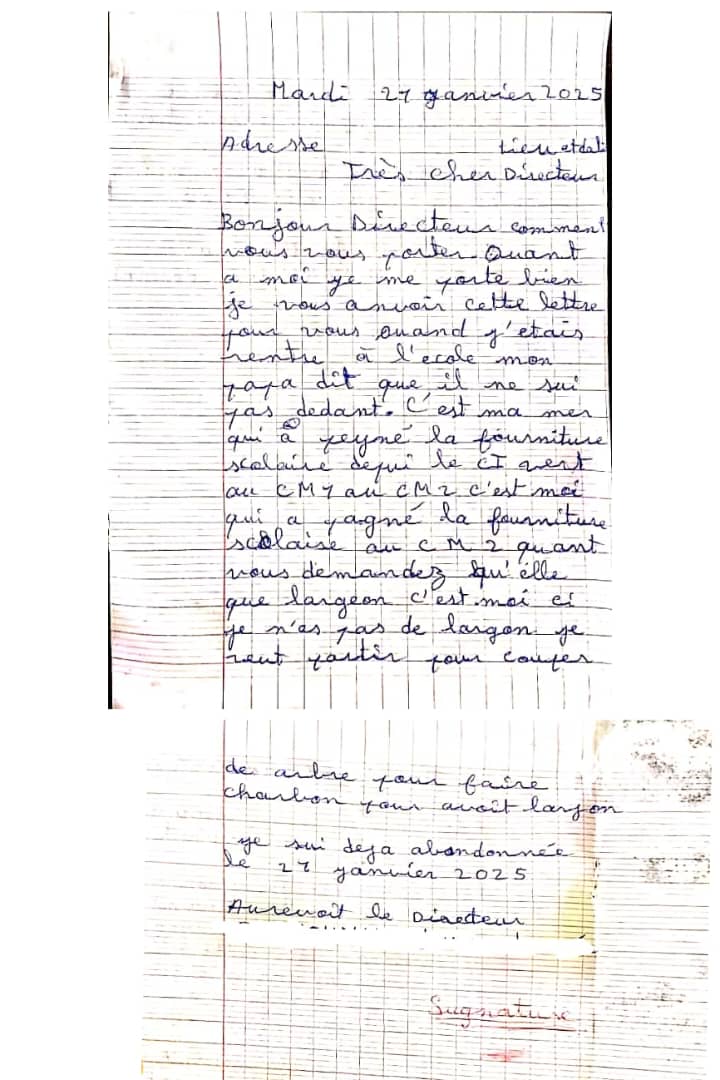 Mardi 27 janvier 2025
Adresse Lieu et dat
Très cher Directeur
Bonjour Directeur comment
vous vous porter Quant
a moi je me porte bien
je vous anvoir cette lettre
pour vous quand j'etais
rentre à l'ecole mon
papa dit que il ne sui
pas dedant. C'est ma mer
qui à peyné la fourniture
scolaire depui le CI vert
au CM1 au CM2 c'est moi
qui a pagné la fourniture
scolaire au CM2 quant
vous demandez qu'élle
que largeon c'est moi ci
je n'as pas de largon je
veut partir pour couper
de arbre pour faire
charbon pour avoit largon
je sui deja abandonnée
le 27 janvier 2025
Aurevoit le Directeur
Sugnature